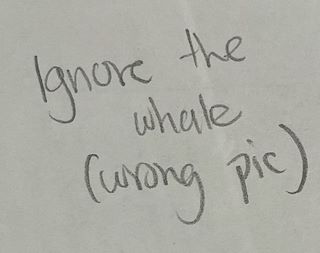 Ignore the
whale
(wrong pic)